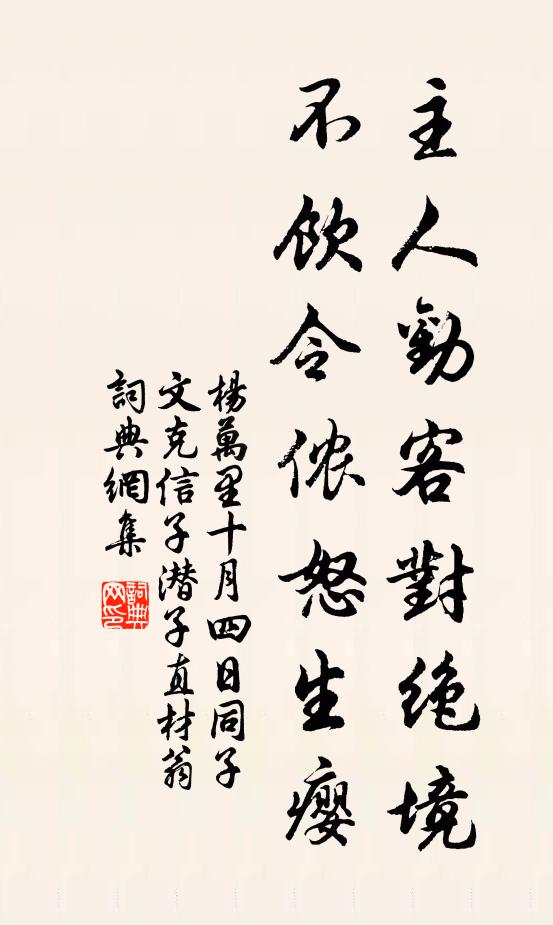 主人勸客對绝境
不飲令侬怒生癭
楊萬里十月四日同子
文克信子潜子直材翁
詞典網集
詞典网印